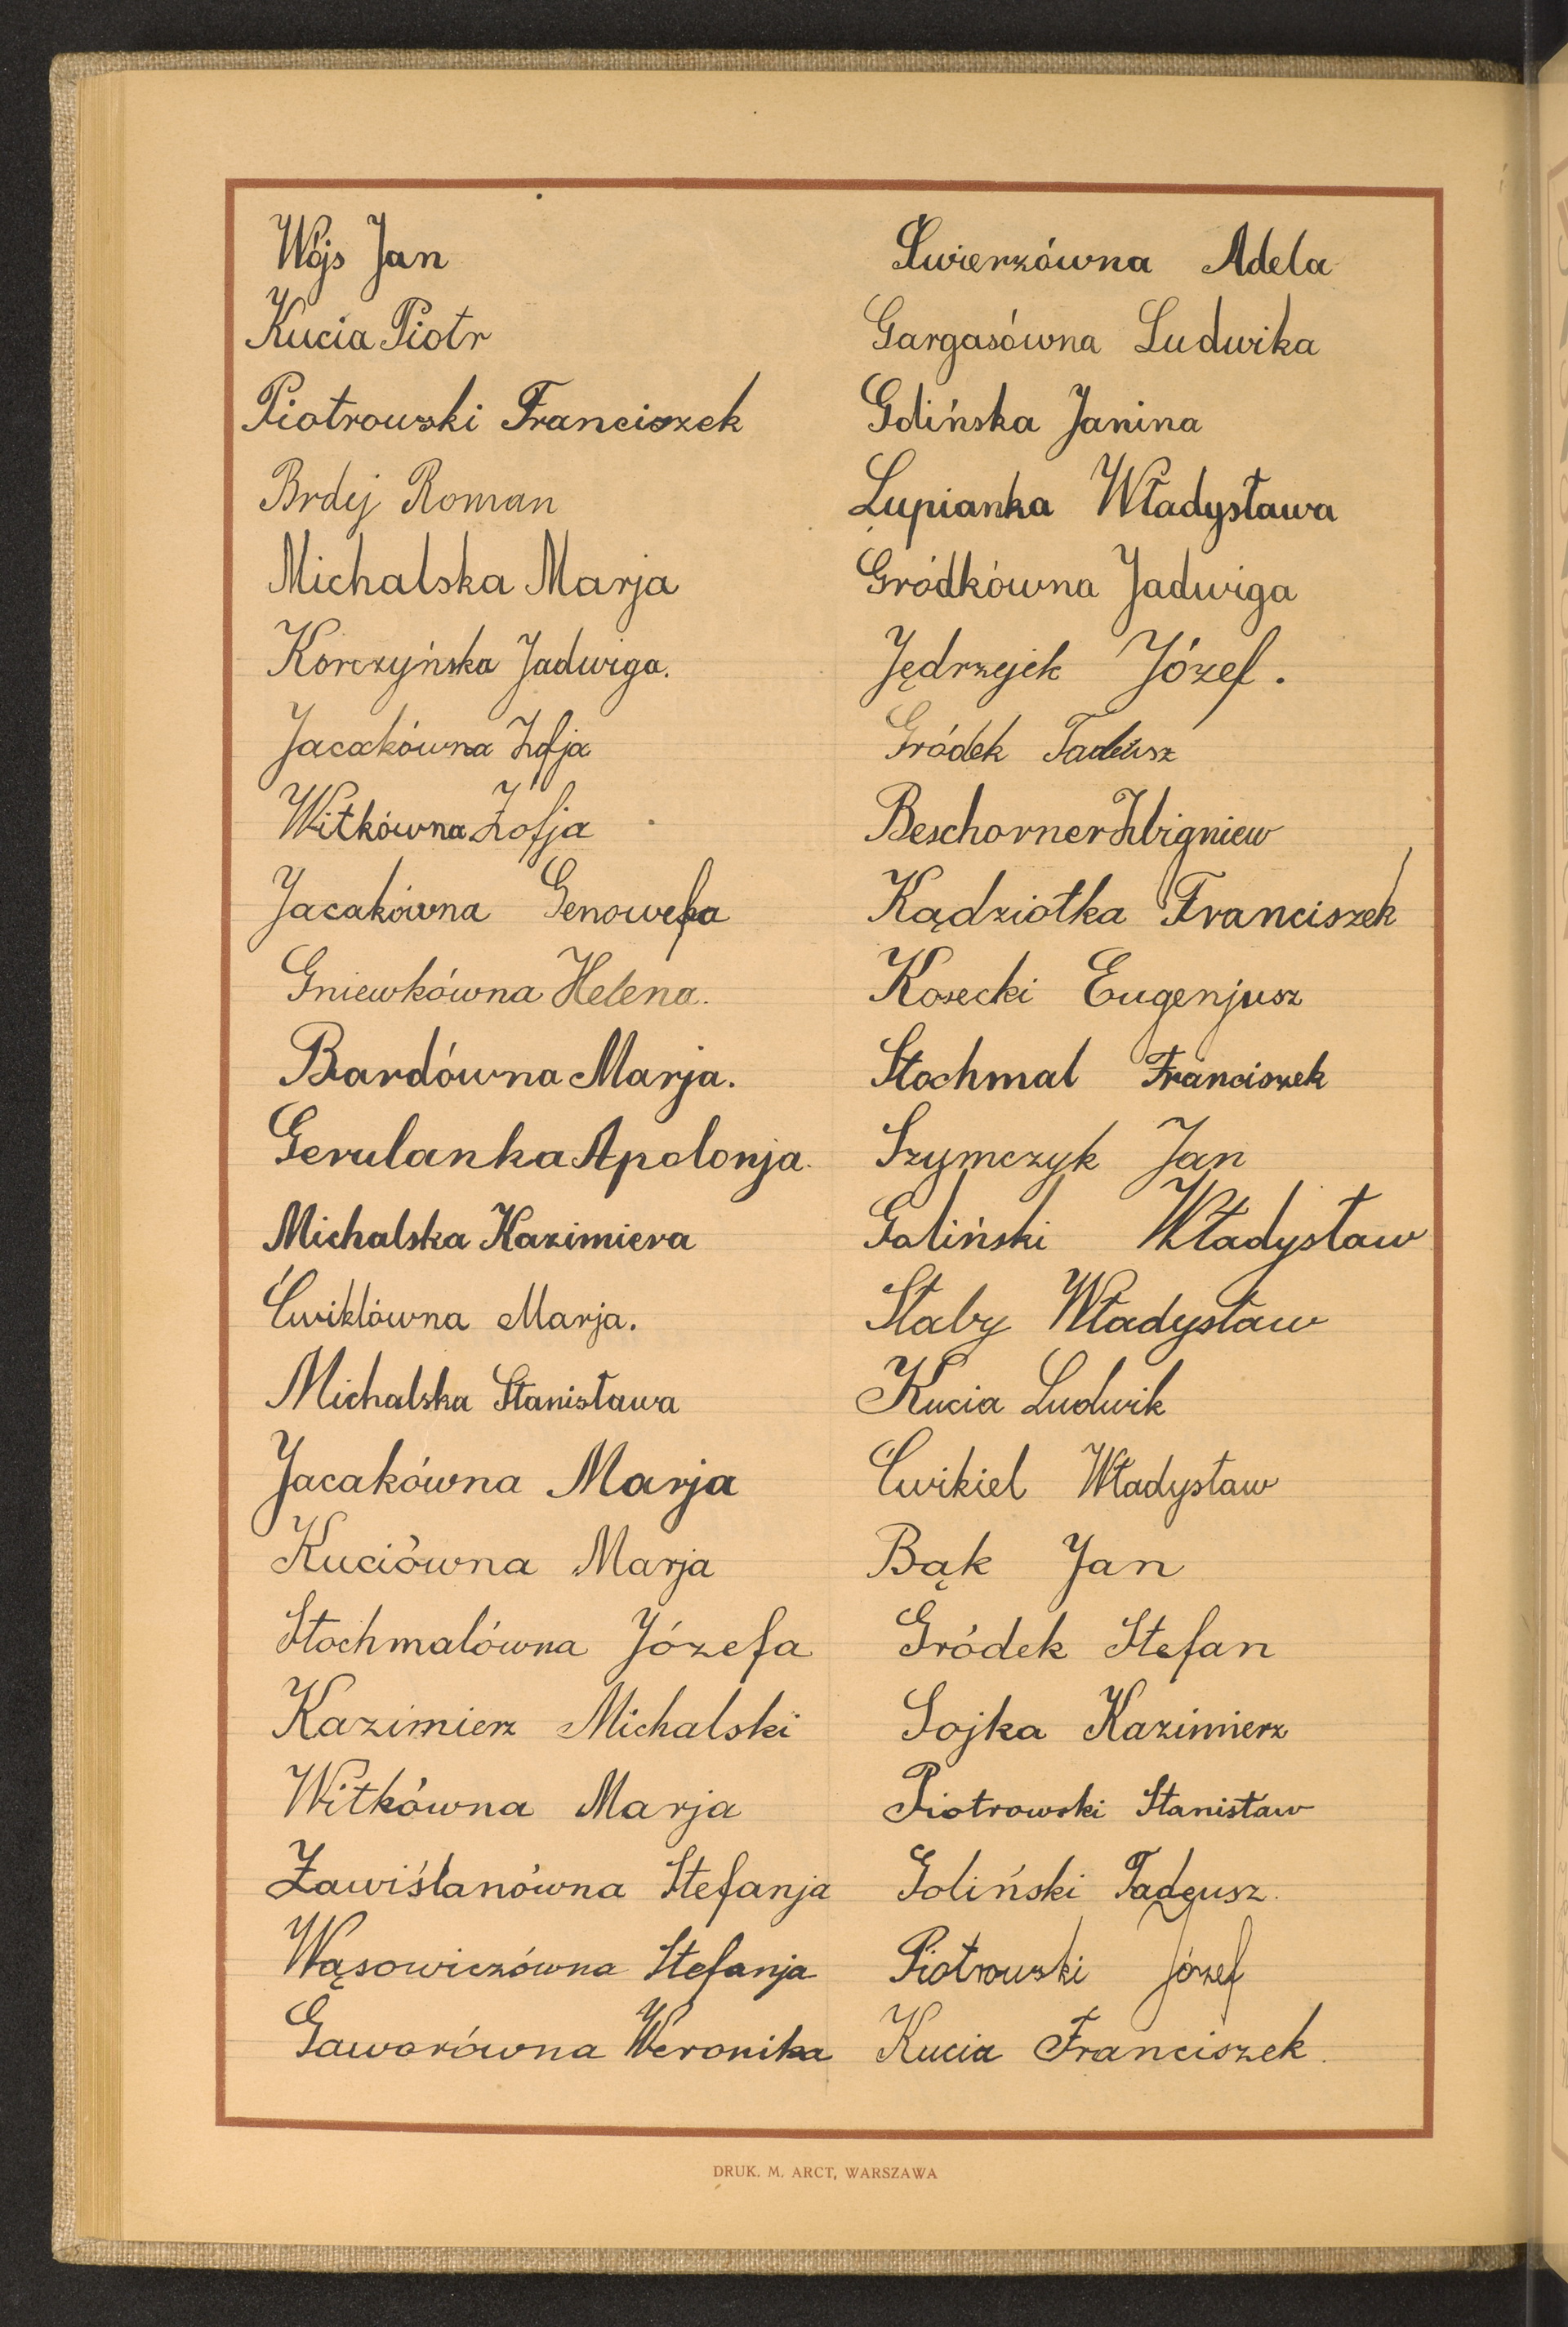 Wójs Jan
Kucia Piotr
Piotrowski Franciszek
Brdej Roman
Michalska Marja
Korczyńska Jadwiga.
Jacakówna Zofja
Witkówna Zofja
Jacakówna Genowefa
Gniewkówna Helena.
Bardówna Marja.
Gerulanka Apolonja.
Michalska Kazimiera
Ćwiklówna Marja.
Michalska Stanisława
Jacakówna Marja
Kuciówna Marja
Stochmalówna Józefa
Kazimierz Michalski
Witkówna Marja
Zawiślanówna Stefanja
Wąsowiczówna Stefanja
Gaworówna Weronika
Świerzówna Adela
Gargasówna Ludwika
Golińska Janina
Łupianka Władysława
Gródkówna Jadwiga
Jędrzejek Józef.
Gródek Tadeusz
Beschorner Zbigniew
Kądziołka Franciszek
Kosecki Eugenjusz
Stochmal Franciszek
Szymczyk Jan
Goliński Władysław
Słaby Władysław
Kucia Ludwik
Ćwikiel Władysław
Bąk Jan
Gródek Stefan
Sojka Kazimierz
Piotrowski Stanisław
Goliński Tadeusz.
Piotrowski Józef
Kucia Franciszek.
DRUK. M. ARCT, WARSZAWA